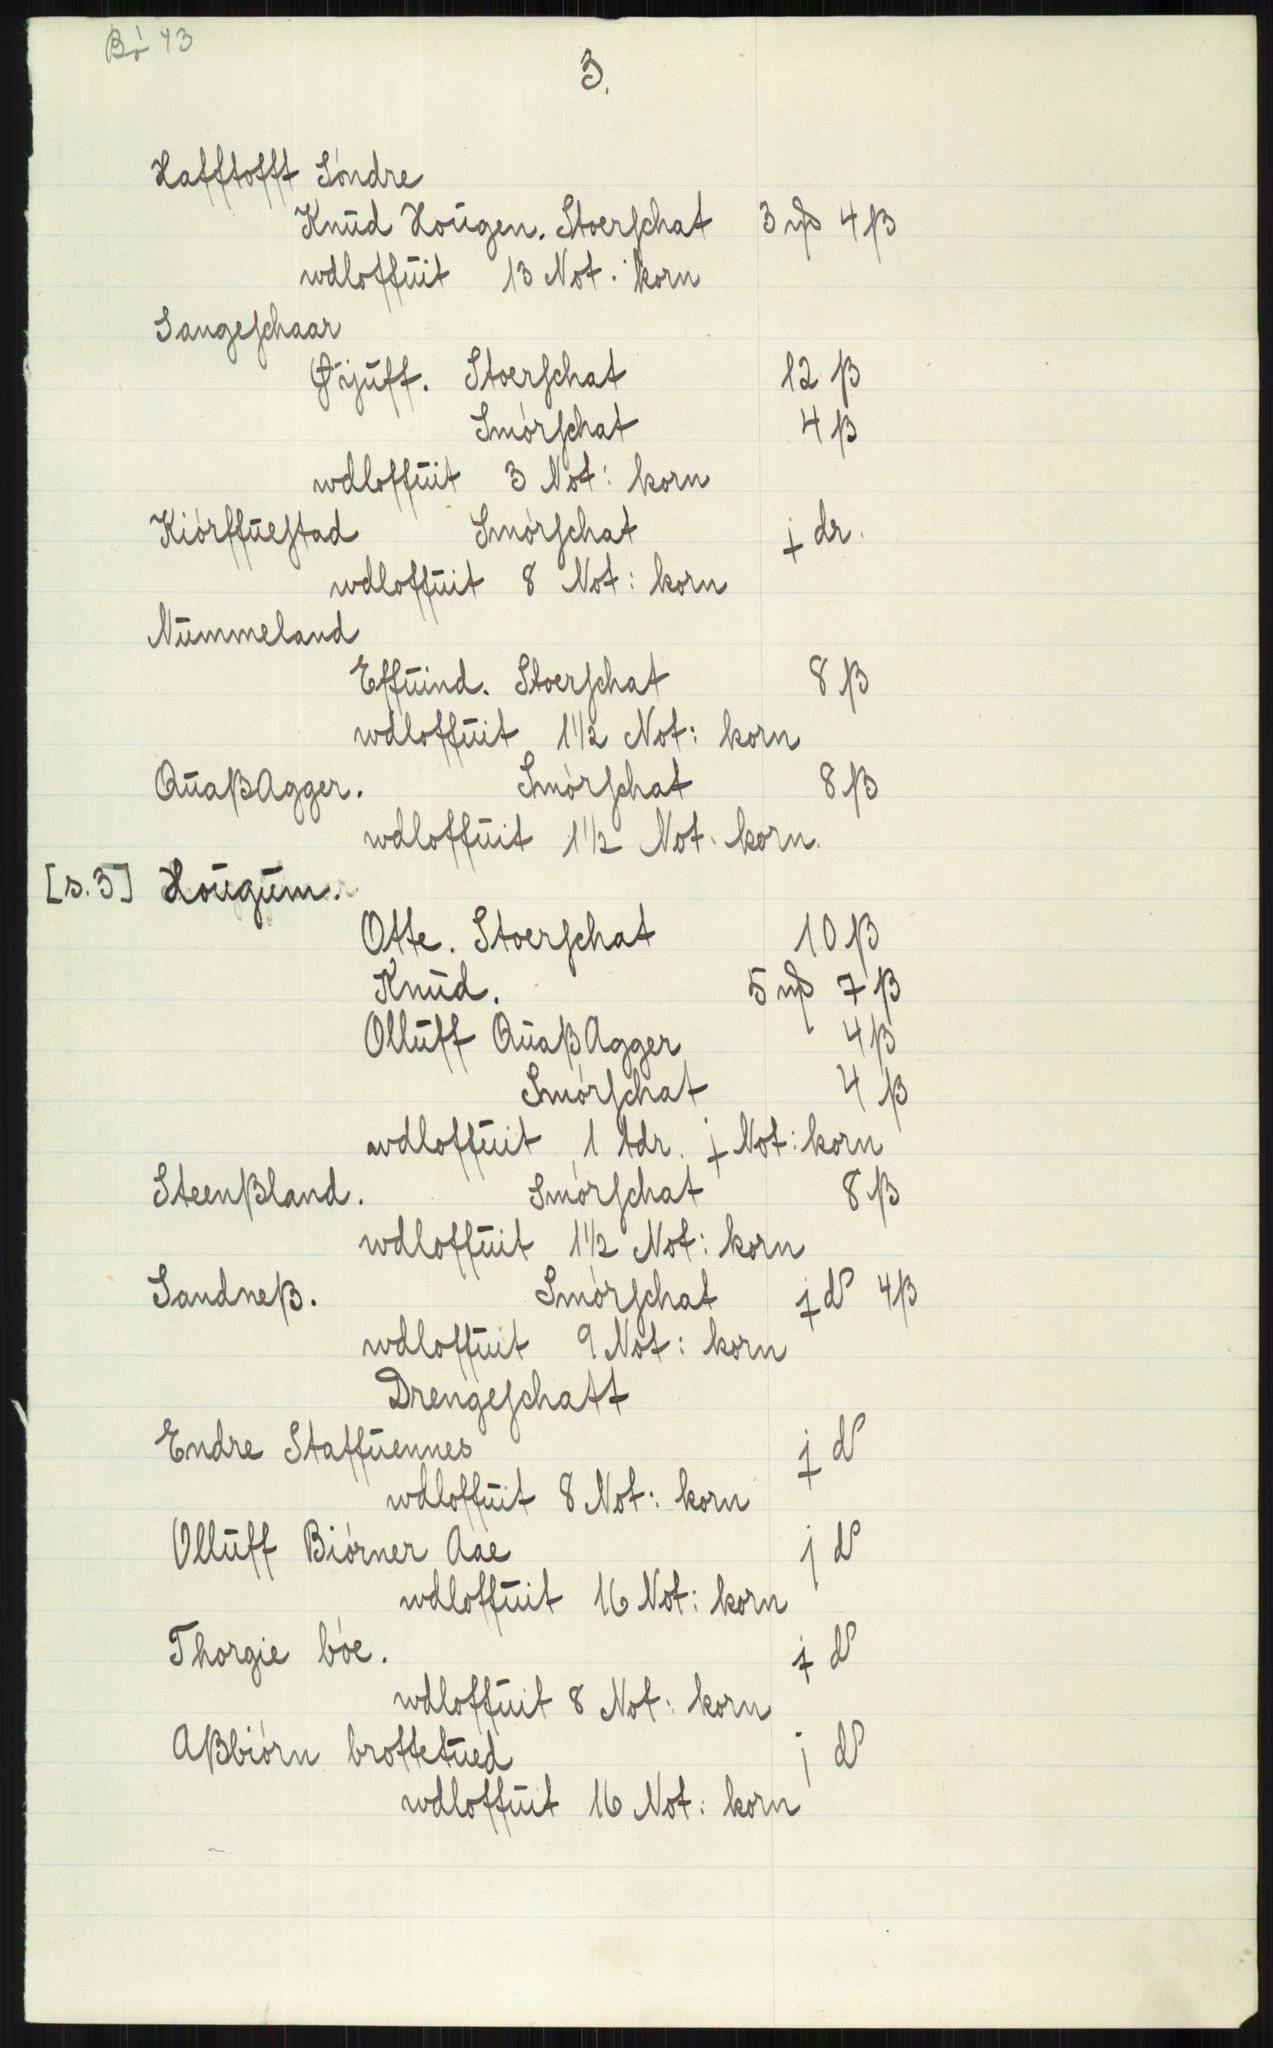 Bö 43
3.
Hafftofft Söndre
Knud Hougen. Stoerschat 3 mß 4 ß
wdloffuit 13 Not. korn
Sangeschaar
Stoerschat 12 ß
Smörschat 4 ß
wdloffuit 3 Not: korn
Kiörffuestad Smörschat j dr.
wdloffuit 8 Not: korn
Nummeland
Effuind. Stoerschat 8 ß
wdloffuit 1 1/2 Not: korn
QuaßAgger. Smörschat 8 ß
wdloffuit 1 1/2 Not. korn.
[s. 3] Hougum.
Otte. Stoerschat 10 ß
Knud. 5 mß 7 ß
Olluff QuaßAgger 4 ß
Smörschat 4 ß
wdloffuit 1 tdr. j Not: korn
Steenßland. Smörschat 8 ß
wdloffuit 1 1/2 Not: korn
Sandneß. Smörschat j d 4 ß
wdloffuit 9 Not: korn
Drengeschatt
Endre Staffuennes j d
wdloffuit 8 Not: korn
Olluff Biörner Aae j d
wdloffuit 16 Not: korn
Thorgie böe. j d
wdloffuit 8 Not: korn
Aßbiörn brottetued j d
wdloffuit 16 Not: korn